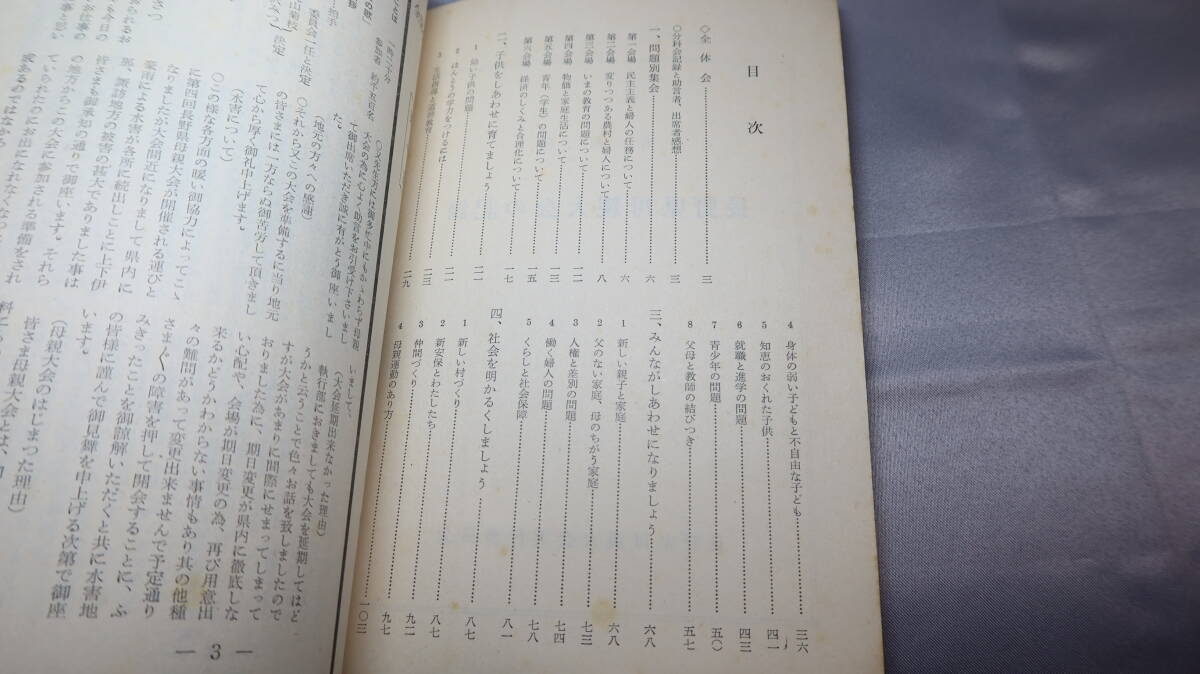 目次
◇全体会 三
○分科会記録と助言者、出席者感想 三
一、問題別集会 六
第一会場 民主主義と婦人の任務について 六
第二会場 変りつつある農村と婦人について 八
第三会場 いまの教育の問題について 一二
第四会場 物価と家庭生活について 一三
第五会場 青年(学生)の問題について 一五
第六会場 経済のしくみと合理化について 一七
二、子供をしあわせに育てましょう 二一
1 幼い子供の問題 二一
2 ほんとうの学力をつけるには 二三
3 生活指導と道徳教育 二九
4 身体の弱い子どもと不自由な子ども 三六
5 知恵のおくれた子供 四一
6 就職と進学の問題 四三
7 青少年の問題 五〇
8 父母と教師の結びつき 五七
三、みんながしあわせになりましょう 六八
1 新しい親子と家庭 六八
2 父のない家庭、母のちがう家庭 七三
3 人権と差別の問題 七四
4 働く婦人の問題 七八
5 くらしと社会保障 八一
四、社会を明かるくしましょう 八七
1 新しい村づくり 八七
2 新安保とわたしたち 九二
3 仲間づくり 九七
4 母親運動のあり方 一〇三
○又先生方には御多忙中にもかゝわらず母親
大会の為に心よく助言をお引受け下さいまし
て御出席いただき誠に有がとう御座いまし
た。
(地元の方々への感謝)
○それから又この大会を準備するに当り地元
の皆さまには一方ならぬ御苦労して頂きまし
て心から厚く御礼申上げます。
(水害について)
○この様な各方面の暖い御協力によってこゝ
に第四回長野県母親大会が開催される運びと
なりましたが大会間近になりまして県内に
豪雨による水害が各所に続出しことに上下伊
那、諏訪地方の被害の甚大でありました事は
皆さまも御承知の通りで御座います。それら
の地方からこの大会に参加される準備をされ
ていられたのにお出になれなくなった
いまして、
(大会延期出来なかった理由)
執行部におきましても大会を延期してはど
うかと云うことで色々お話を致しましたので
すが大会があまりに間際にせまってしまって
おりました為に、期日変更が県内に徹底しな
い心配や、会場が期日変更の為、再び用意出
来るかどうかわからない事情もあり其の他種
々の難問があって変更出来ませんで予定通り
さまざまの障害を押して開会することに、ふ
みきったことを御諒解いただくと共に水害地
の皆様に謹んで御見舞を申上げる次第で御座
います。
(母親大会のはじまった理由)
皆さま母親大会とは、
— 3 —